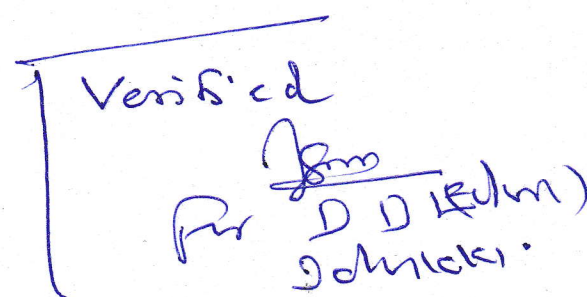 Verified
For D D (Edun)
Idukki.